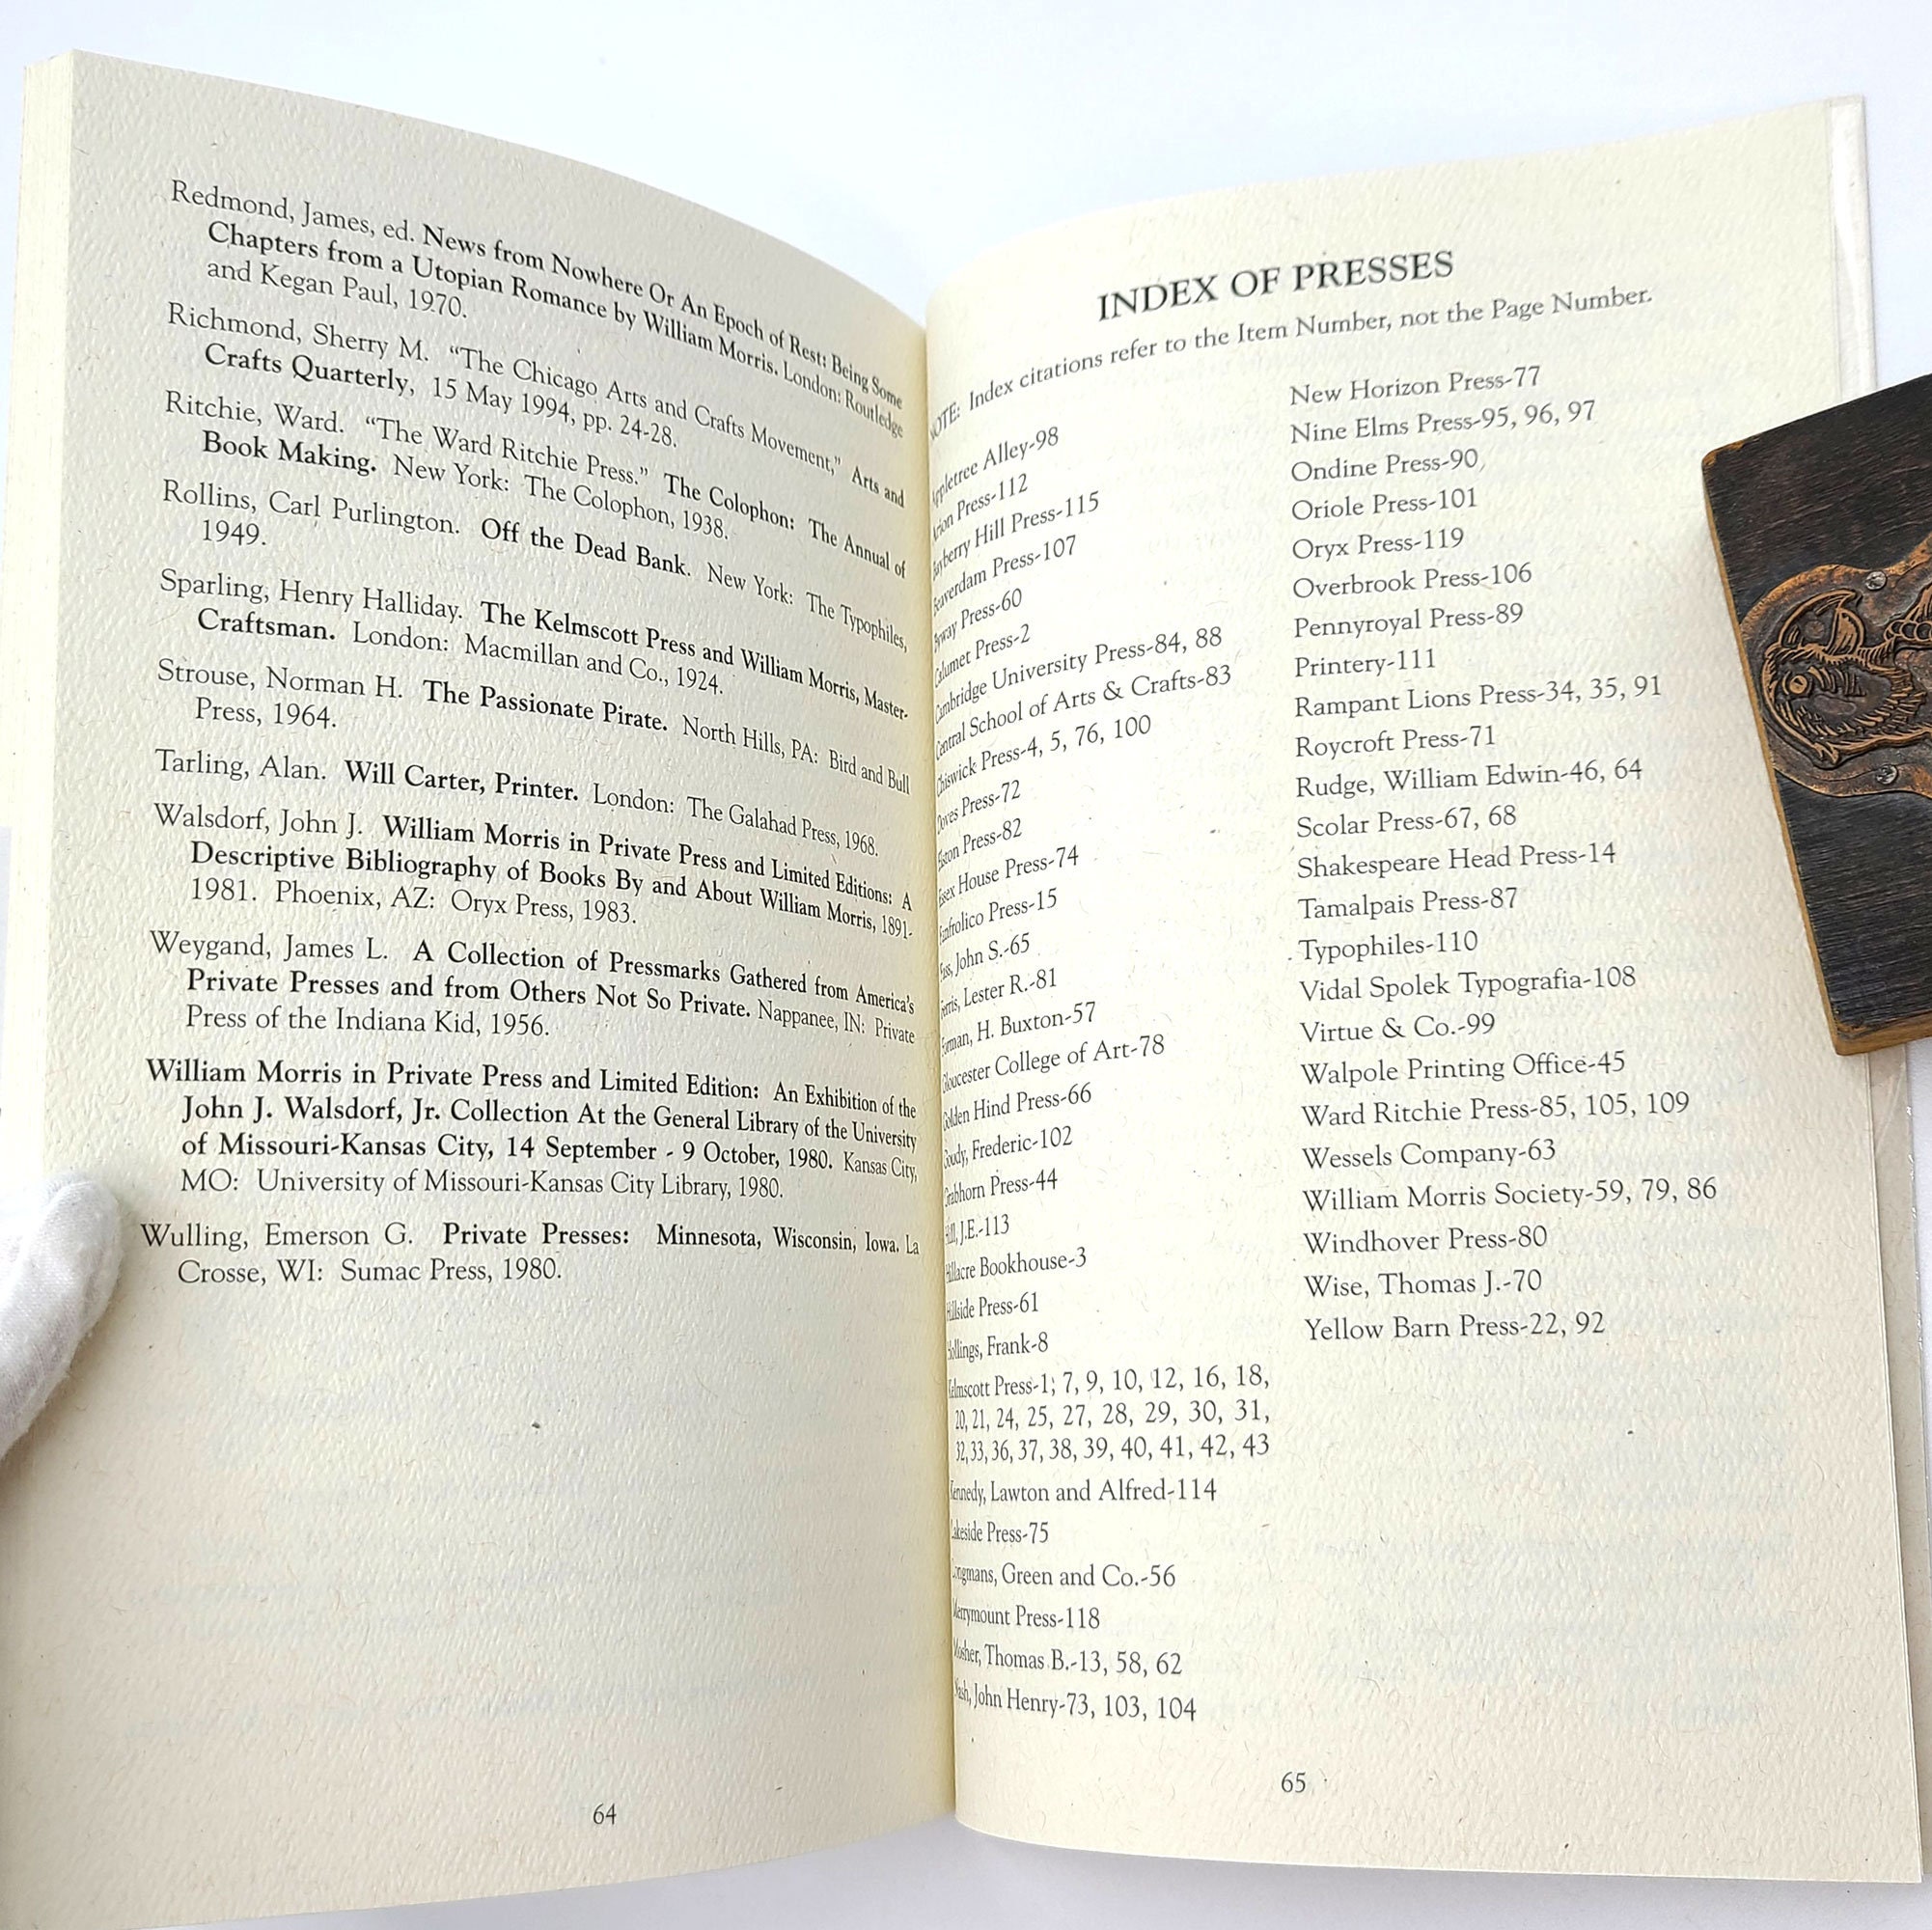 Redmond, James, ed. News from Nowhere Or An Epoch of Rest: Being Some
Chapters from a Utopian Romance by William Morris. London: Routledge
and Kegan Paul, 1970.
Richmond, Sherry M. “The Chicago Arts and Crafts Movement,” Arts and
Crafts Quarterly, 15 May 1994, pp. 24-28.
Ritchie, Ward. “The Ward Ritchie Press.” The Colophon: The Annual of
Book Making. New York: The Colophon, 1938.
Rollins, Carl Purlington. Off the Dead Bank. New York: The Typophiles,
1949.
Sparling, Henry Halliday. The Kelmscott Press and William Morris, Master-
Craftsman. London: Macmillan and Co., 1924.
Strouse, Norman H. The Passionate Pirate. North Hills, PA: Bird and Bull
Press, 1964.
Tarling, Alan. Will Carter, Printer. London: The Galahad Press, 1968.
Walsdorf, John J. William Morris in Private Press and Limited Editions: A
Descriptive Bibliography of Books By and About William Morris, 1891-
1981. Phoenix, AZ: Oryx Press, 1983.
Weygand, James L. A Collection of Pressmarks Gathered from America's
Private Presses and from Others Not So Private. Nappanee, IN: Private
Press of the Indiana Kid, 1956.
William Morris in Private Press and Limited Edition: An Exhibition of the
John J. Walsdorf, Jr. Collection At the General Library of the University
of Missouri-Kansas City, 14 September - 9 October, 1980. Kansas City,
MO: University of Missouri-Kansas City Library, 1980.
Wulling, Emerson G. Private Presses: Minnesota, Wisconsin, Iowa. La
Crosse, WI: Sumac Press, 1980.
64
INDEX OF PRESSES
NOTE: Index citations refer to the Item Number, not the Page Number.
Appletree Alley-98
Arion Press-112
Bayberry Hill Press-115
Beaverdam Press-107
Byway Press-60
Calumet Press-2
Cambridge University Press-84, 88
Central School of Arts & Crafts-83
Chiswick Press-4, 5, 76, 100
Doves Press-72
Elston Press-82
Essex House Press-74
Fanfrolico Press-15
Fass, John S.-65
Ferris, Lester R.-81
Forman, H. Buxton-57
Gloucester College of Art-78
Golden Hind Press-66
Goudy, Frederic-102
Grabhorn Press-44
Hill, J.E.-113
Hillacre Bookhouse-3
Hillside Press-61
Hollings, Frank-8
Kelmscott Press-1; 7, 9, 10, 12, 16, 18,
20, 21, 24, 25, 27, 28, 29, 30, 31,
32, 33, 36, 37, 38, 39, 40, 41, 42, 43
Kennedy, Lawton and Alfred-114
Lakeside Press-75
Longmans, Green and Co.-56
Merrymount Press-118
Mosher, Thomas B.-13, 58, 62
Nash, John Henry-73, 103, 104
New Horizon Press-77
Nine Elms Press-95, 96, 97
Ondine Press-90
Oriole Press-101
Oryx Press-119
Overbrook Press-106
Pennyroyal Press-89
Printery-111
Rampant Lions Press-34, 35, 91
Roycroft Press-71
Rudge, William Edwin-46, 64
Scolar Press-67, 68
Shakespeare Head Press-14
Tamalpais Press-87
Typophiles-110
Vidal Spolek Typografia-108
Virtue & Co.-99
Walpole Printing Office-45
Ward Ritchie Press-85, 105, 109
Wessels Company-63
William Morris Society-59, 79, 86
Windhover Press-80
Wise, Thomas J.-70
Yellow Barn Press-22, 92
65